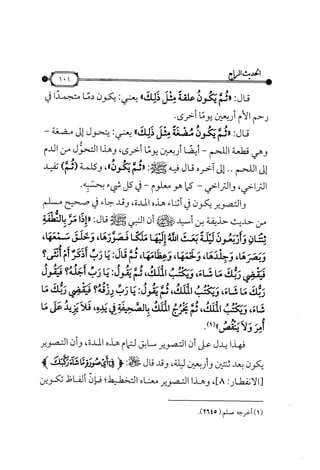 الحديث الرابع
١٠١
قال: «ثُمَّ يَكُونُ عَلَقَةً مِثْلَ ذَلِكَ» يعني: يكون دمًا متجمدًا في
رحم الأم أربعين يومًا أخرى.
قال: «ثُمَّ يَكُونُ مُضْغَةً مِثْلَ ذَلِكَ» يعني: يتحول إلى مضغة -
وهي قطعة اللحم - أيضًا أربعين يومًا أخرى، وهذا التحوُّل من الدم
إلى اللحم .. إلى آخره قال فيه ﷺ: «ثُمَّ يَكُونُ»، وكلمة (ثُمَّ) تفيد
التراخي، والتراخي - كما هو معلوم - في كل شيء بحَسَبِه.
والتصوير يكون في أثناء هذه المدة، وقد جاء في صحيح مسلم
من حديث حذيفة بن أسيد ﷺ أن النبي ﷺ قال: «إِذَا مَرَّ بِالنُّطْفَةِ
ثِنْتَانِ وَأَرْبَعُونَ لَيْلَةً بَعَثَ اللَّهُ إِلَيْهَا مَلَكًا فَصَوَّرَهَا، وَخَلَقَ سَمْعَهَا،
وَبَصَرَهَا، وَجِلْدَهَا، وَلَحْمَهَا، وَعِظَامَهَا، ثُمَّ قَالَ: يَا رَبِّ أَذَكَرٌ أَمْ أُنْثَى؟
فَيَقْضِي رَبُّكَ مَا شَاءَ، وَيَكْتُبُ الْمَلَكُ، ثُمَّ يَقُولُ: يَا رَبِّ أَجَلُهُ؟ فَيَقُولُ
رَبُّكَ مَا شَاءَ، وَيَكْتُبُ الْمَلَكُ، ثُمَّ يَقُولُ: يَا رَبِّ رِزْقُهُ؟ فَيَقْضِي رَبُّكَ مَا
شَاءَ، وَيَكْتُبُ الْمَلَكُ، ثُمَّ يَخْرُجُ الْمَلَكُ بِالصَّحِيفَةِ فِي يَدِهِ، فَلَا يَزِيدُ عَلَى مَا
أُمِرَ وَلَا يَنْقُصُ»(١).
فهذا يدل على أن التصوير سابق لتمام هذه المدة، وأن التصوير
يكون بعد ثنتين وأربعين ليلة، وقد قال: ﴿فِي أَيِّ صُورَةٍ مَا شَاءَ رَكَّبَكَ﴾
[الانفطار: ٨]، وهذا التصوير معناه التخطيط؛ فإنَّ ألفاظ تكوين
(١) أخرجه مسلم (٢٦٤٥).